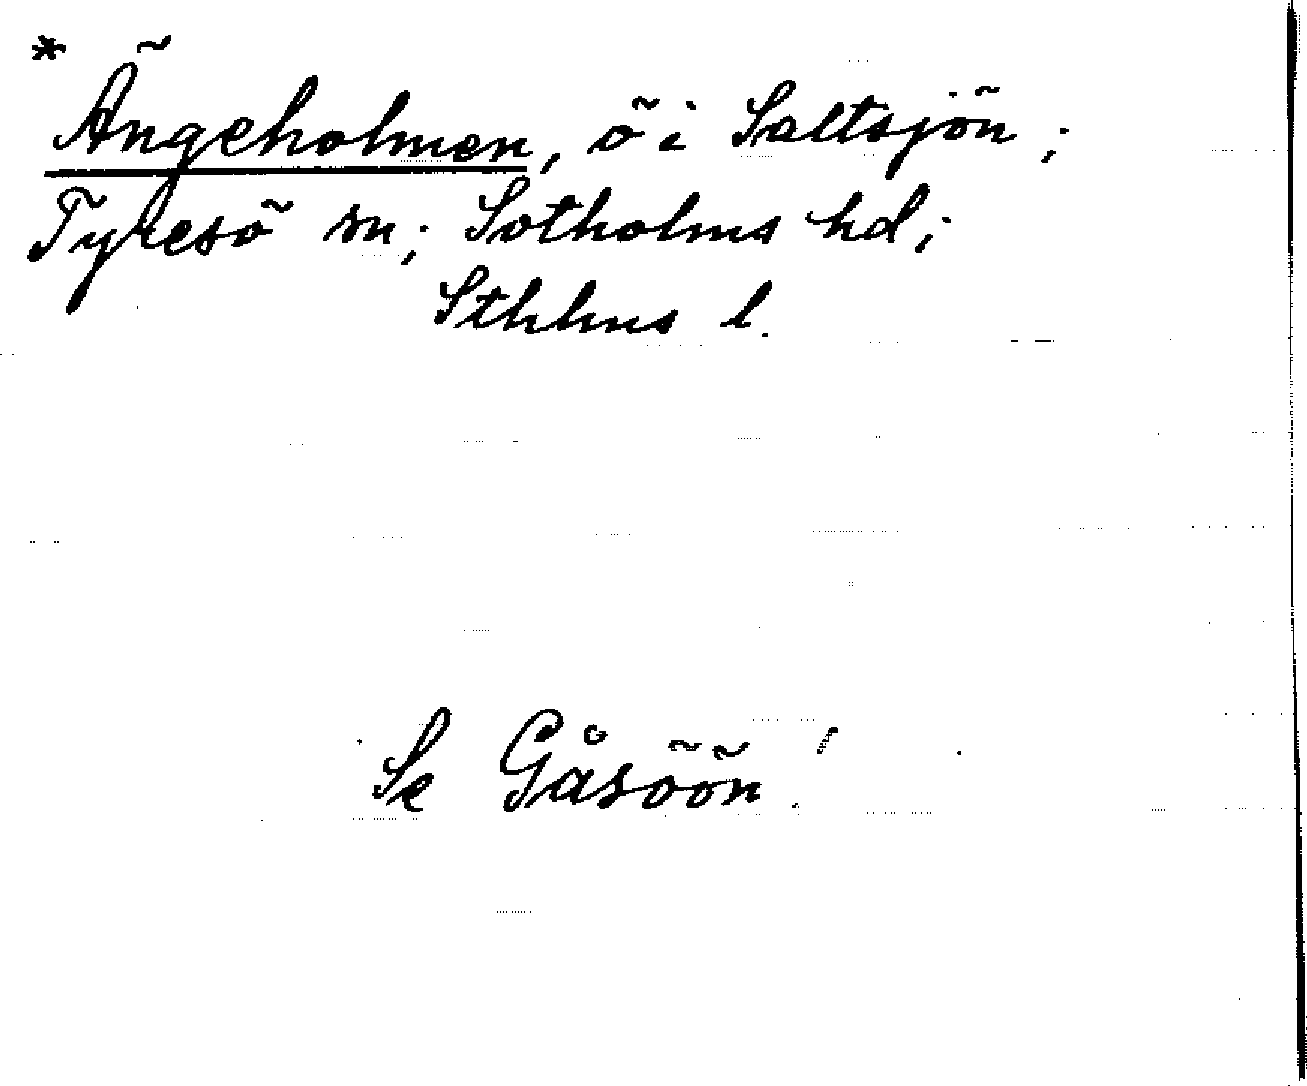 * Ängeholmen, ö i Saltsjön;
Tyresö sn; Sotholms hd;
Sthlms l.
Se Gåsöön!